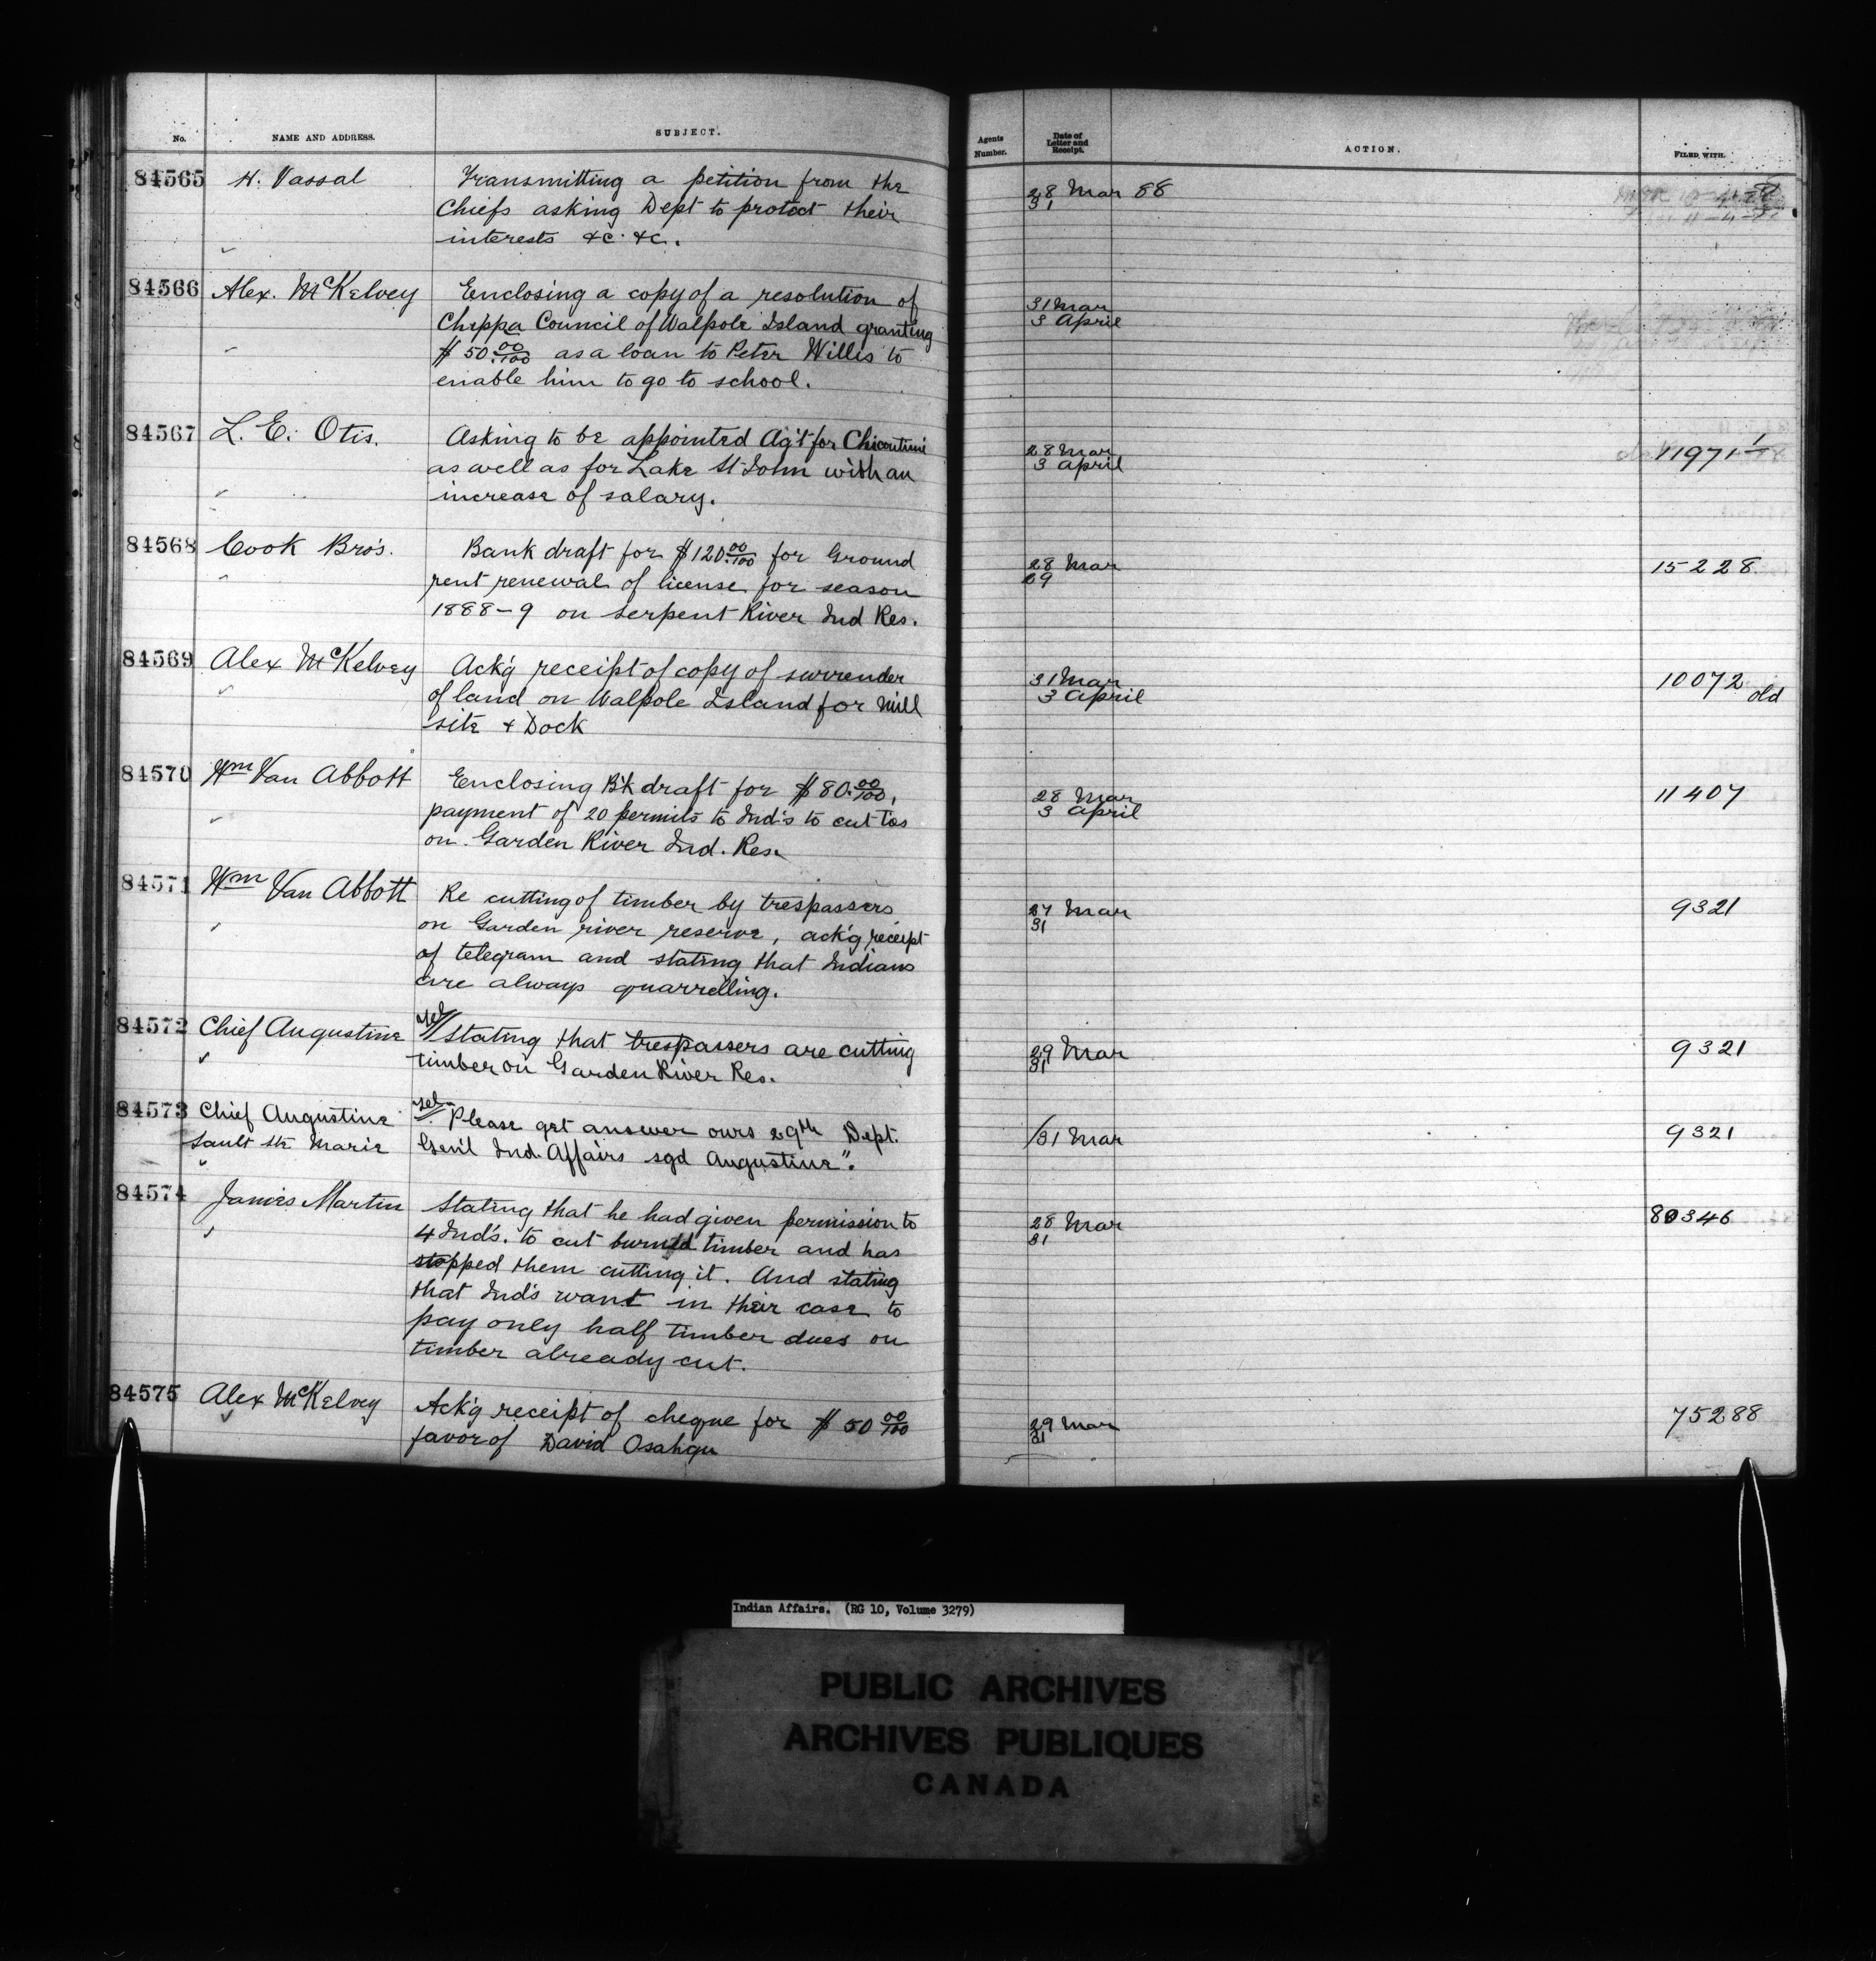 No.
NAME AND ADDRESS.
SUBJECT.
Agents
Number.
Date of
Letter and
Receipt.
ACTION.
FILED WITH.
84565 H. Vassal Transmitting a petition from the 28 Mar 88
Chiefs asking Dept to protect their 31
interests &c. &c.
84566 Alex. McKelvey Enclosing a copy of a resolution of 31 Mar
Chippa Council of Walpole Island granting 3 April
$50.00/100 as a loan to Peter Willis to
enable him to go to school.
84567 L. E. Otis. Asking to be appointed Ag't for Chicoutimi 28 Mar 11971
as well as for Lake St John with an 3 April
increase of salary.
84568 Cook Bro's. Bank draft for $120.00/100 for Ground 28 Mar 15228
rent renewal of license for season 29
1888-9 on Serpent River Ind Res.
84569 Alex McKelvey Ack'g receipt of copy of surrender 31 Mar 10072 old
of land on Walpole Island for mill 3 April
site & Dock
84570 Wm Van Abbott Enclosing B'k draft for $80.00/100, 28 Mar 11407
payment of 20 permits to Ind's to cut ties 3 April
on Garden River Ind. Res.
84571 Wm Van Abbott Re cutting of timber by trespassers 27 Mar 9321
on Garden river reserve, ack'g receipt 31
of telegram and stating that Indians
are always quarrelling.
84572 Chief Augustine Tel // Stating that trespassers are cutting 29 Mar 9321
timber on Garden River Res. 31
84573 Chief Augustine Tel // "Please get answer ours 29th Dept. /31 Mar 9321
Sault Ste Marie Gen'l Ind. Affairs sgd Augustine".
84574 James Martin Stating that he had given permission to 28 Mar 80346
4 Ind's. to cut burned timber and has 31
stopped them cutting it. And stating
that Ind's want in their case to
pay only half timber dues on
timber already cut.
84575 Alex McKelvey Ack'g receipt of cheque for $50 00/100 29 Mar 75288
favor of David Osahgu 31
Indian Affairs. (RG 10, Volume 3279)
PUBLIC ARCHIVES
ARCHIVES PUBLIQUES
CANADA